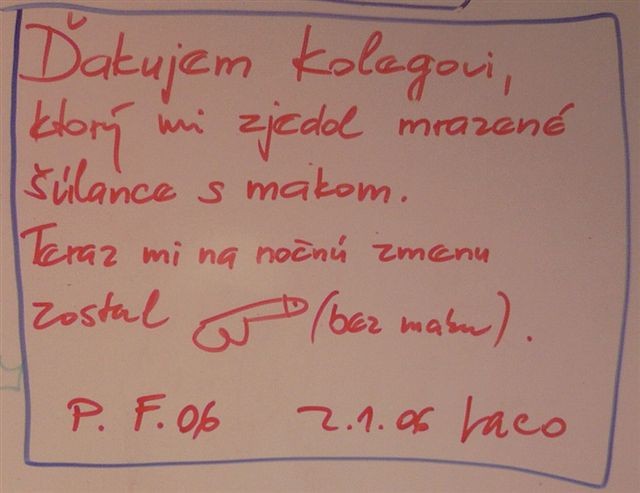 Ďakujem kolegovi,
ktorý mi zjedol mrazené
šúlance s makom.
Teraz mi na nočnú zmenu
zostal (bez maku).
P. F. 06 2.1.06 Laco